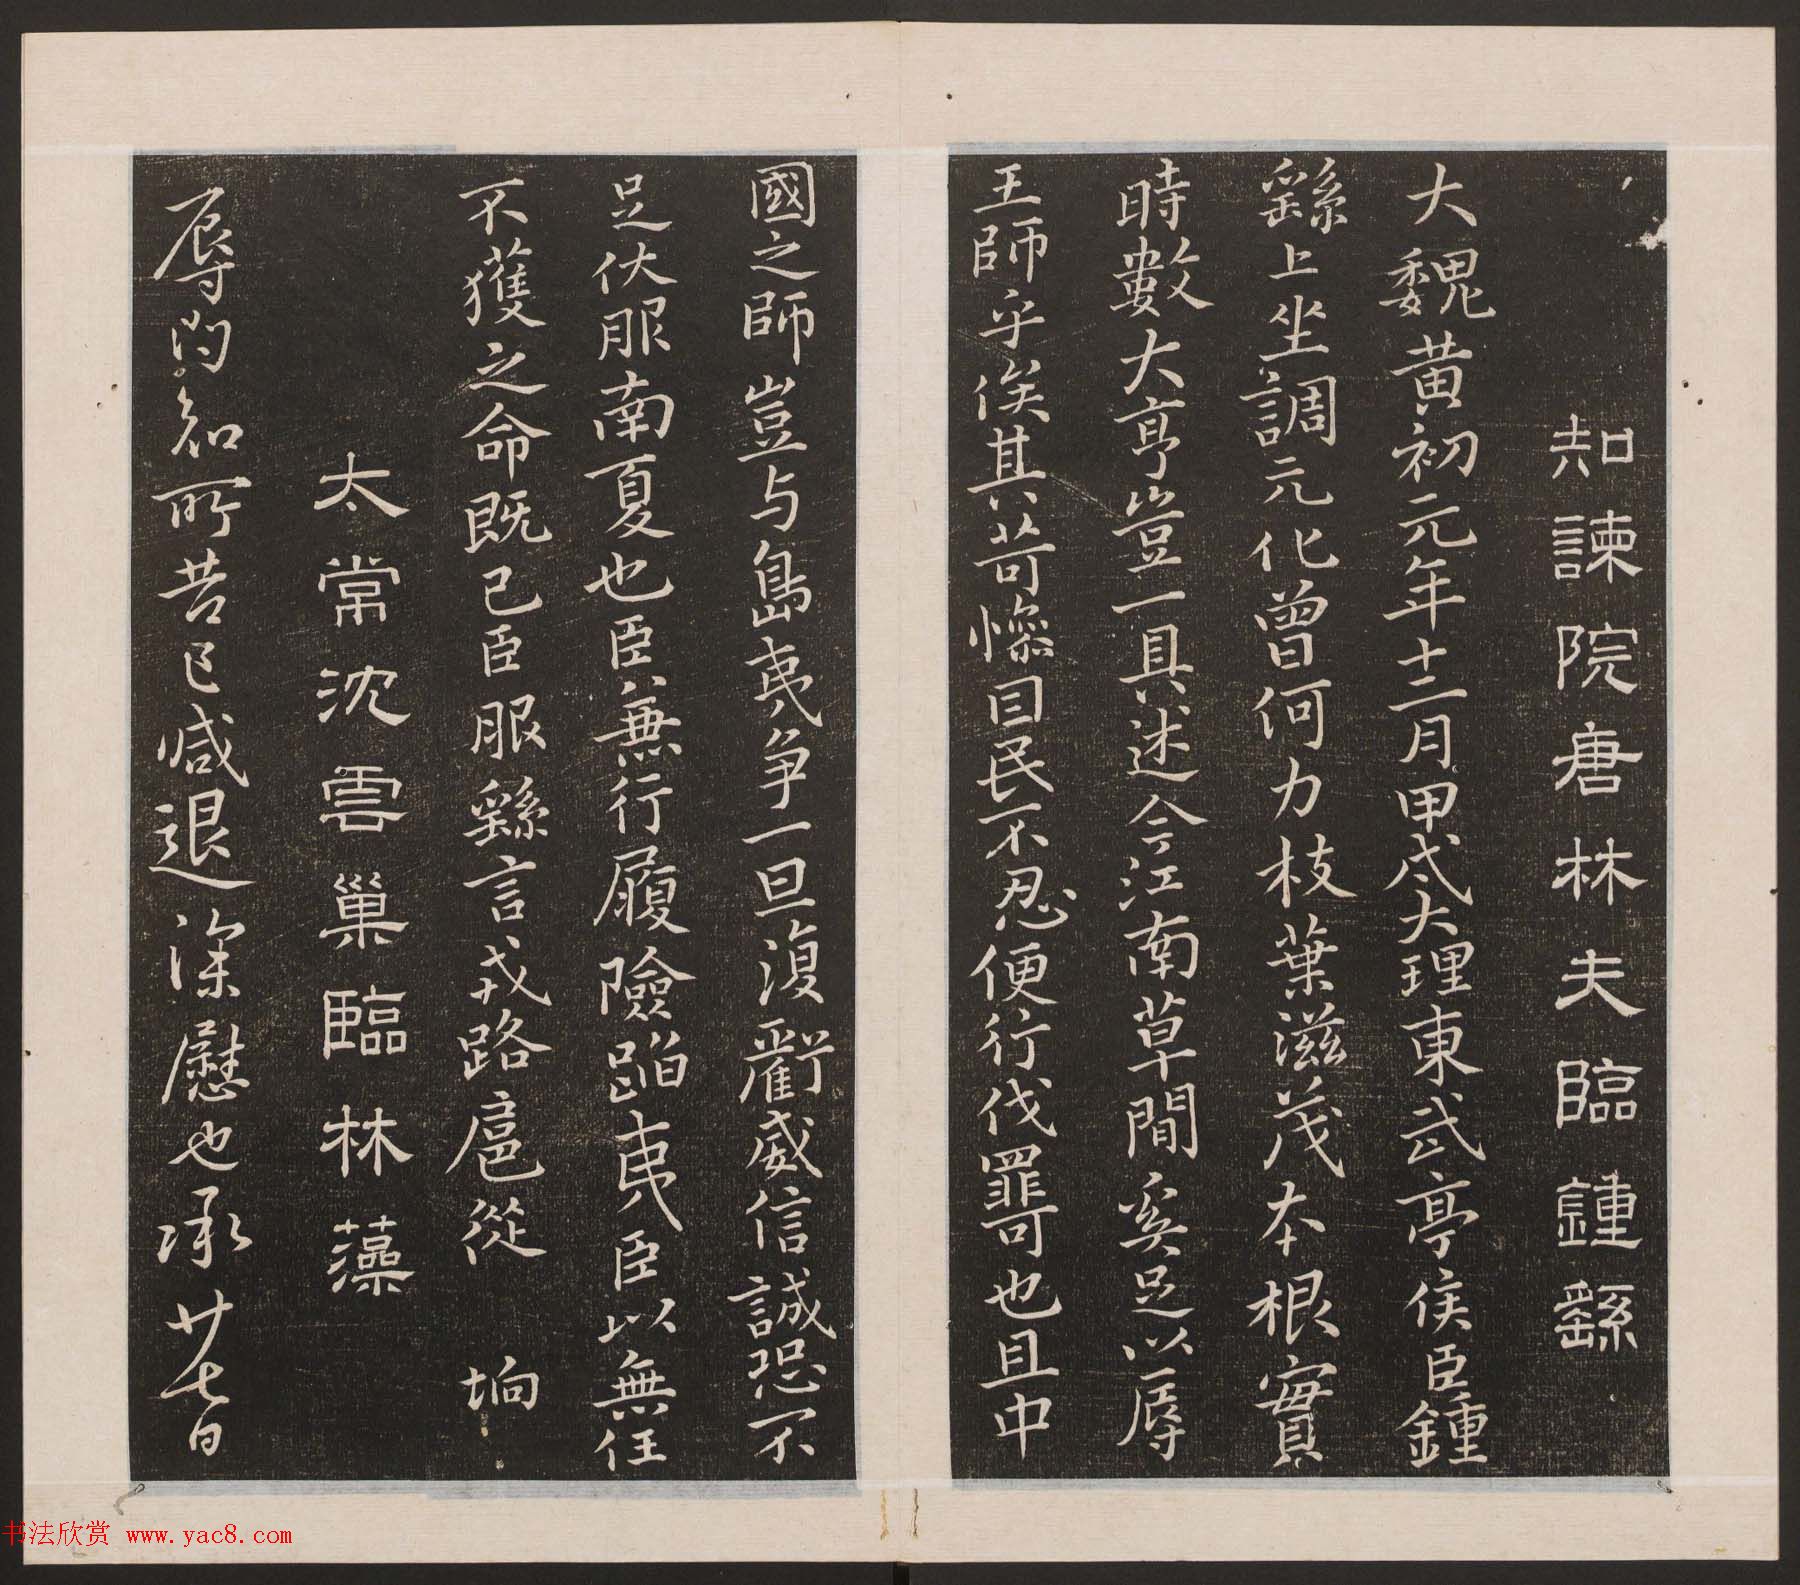 知諫院唐林夫臨鍾繇
大魏黃初元年十二月甲戌大理東武亭侯臣鍾
繇上坐調元化曾何力枝葉滋茂本根實
時數大亨豈一具述今江南草間奚足以辱
王師乎俟其苛慘因民不忍便行伐罪可也且中
國之師豈与島夷争一旦復虧威信誠恐不
足伏服南夏也臣無行履險蹈夷臣以無任
不獲之命既已臣服繇言戎路扈從 坰
太常沈雲巢臨林藻
辱問知所苦已減退深慰也承廿七日
书法欣赏 www.yac8.com